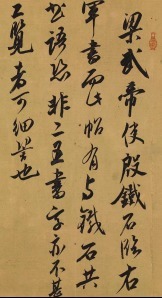 梁武帝使殷鐵石臨右
軍書而此帖有與鐵石共
書語恐非二王書字亦不甚
工覽者可細辨也